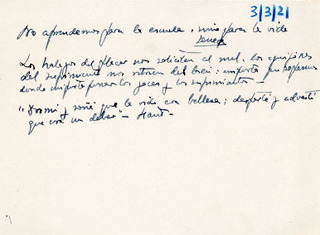 3/3/21
No aprendemos para la escuela, sino para la vida
Seneca
Los halagos del placer nos solicitan al mal, los aguijones
del sufrimiento nos retraen del bien: importa que sepamos
donde importa poner los goces y los sufrimientos
"Dormí y soñé que la vida era belleza: desperté y advertí
que era un deber" - Kant -